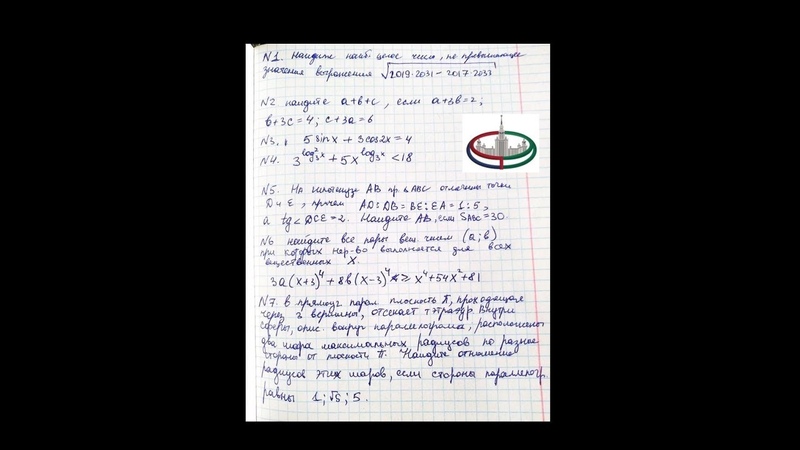 N1. Найдите наиб. целое число, не превышающее
значения выражения √2019·2031 − 2017·2033
N2 найдите a+b+c, если a+3b=2;
b+3c=4; c+3a=6
N3. 5 sinx + 3cos2x = 4
N4. 3^log²₃x + 5x^log₃x < 18
N5. На гипотенузе AB пр. Δ ABC отмечены точки
D и E, причем AD:DB = BE:EA = 1:5,
а tg∠DCE=2. Найдите AB, если S_ABC=30.
N6 найдите все пары вещ. чисел (a;b)
при которых нер-во выполняется для всех
вещественных X.
3a(x+3)⁴ + 8b(x−3)⁴ ≥ x⁴+54x²+81
N7. В прямоуг парал. плоскость π, проходящая
через 3 вершины, отсекает тэтраэдр. Внутри
сферы, опис. вокруг параллелограмма, расположены
два шара максимальных радиусов по разные
стороны от плоскости π. Найдите отношение
радиусов этих шаров, если стороны параллелогр.
равны 1; √5; 5.